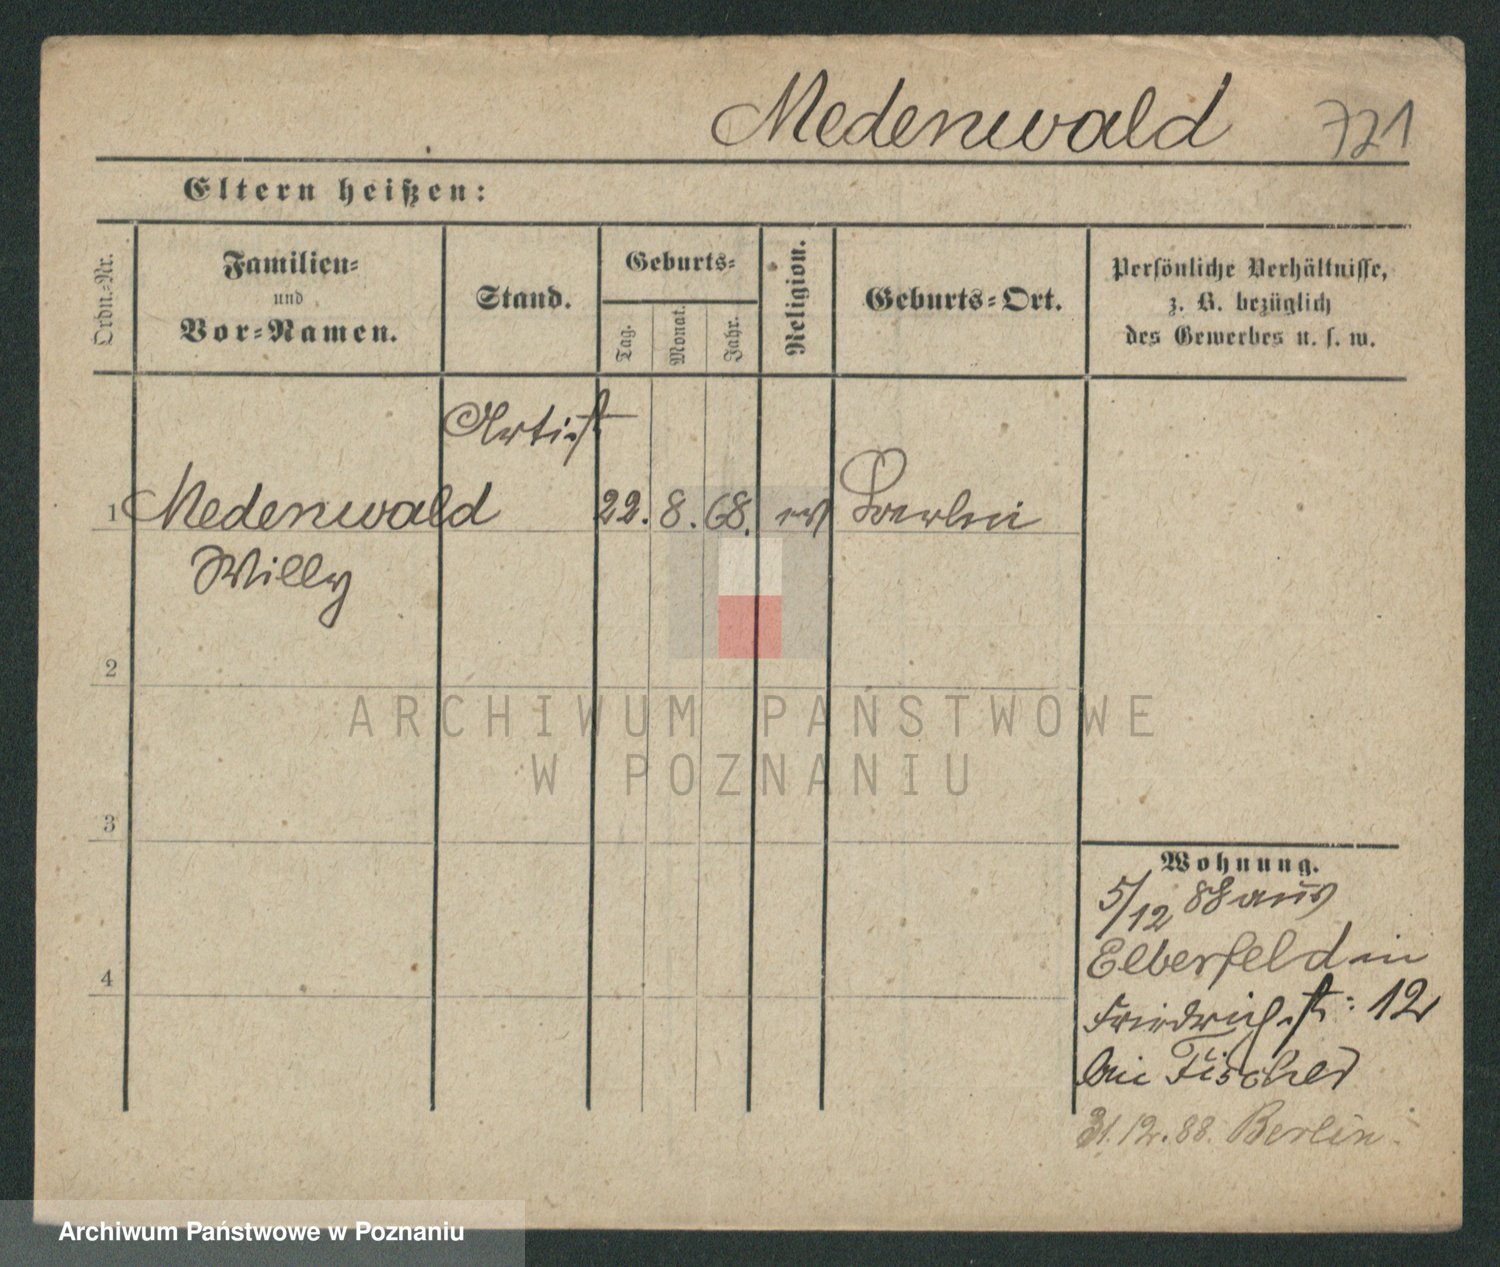 Medenwald 721
Eltern heißen:
Ordn.-Nr.
Familien-
und
Vor-Namen.
Stand.
Geburts-
Tag.
Monat.
Jahr.
Religion.
Geburts-Ort.
Persönliche Verhältnisse,
z. B. bezüglich
des Gewerbes u. s. w.
Artist
1 Medenwald 22. 8. 68. ev Berlin
Willy
2
ARCHIWUM PAŃSTWOWE
W POZNANIU
3
Wohnung.
5/12 88 aus
Elberfeld in
Friedrichst: 12
bei Fischer
4
31.12.88. Berlin.
Archiwum Państwowe w Poznaniu